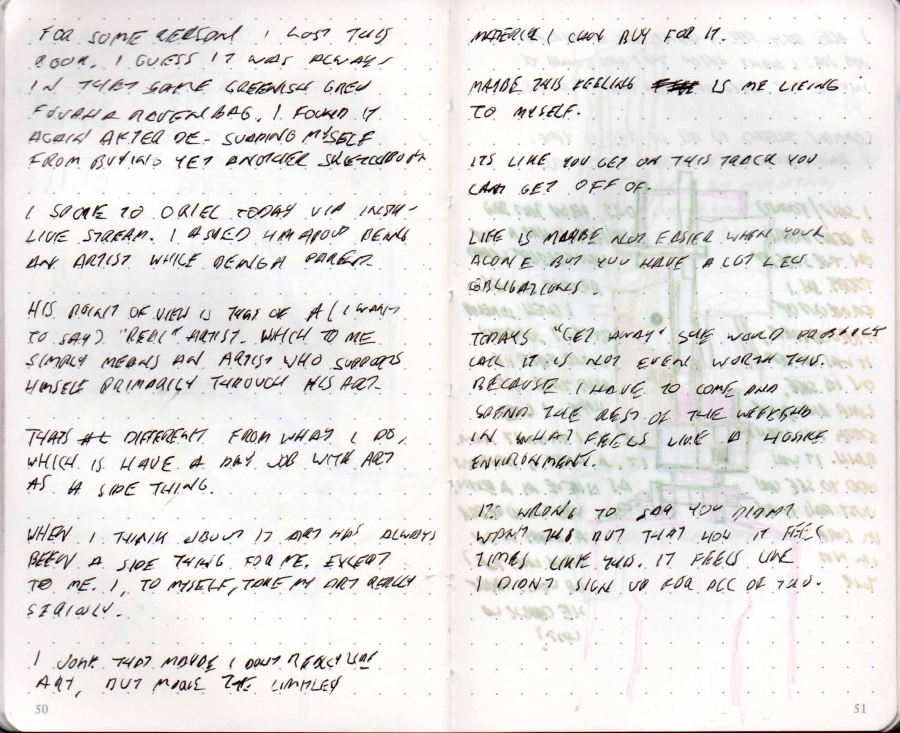 FOR SOME REASON I LOST THIS
BOOK. I GUESS IT WAS ALWAYS
IN THAT SAME GREENISH GREY
BAG. I FOUND IT
AGAIN AFTER DE-SUADING MYSELF
FROM BUYING YET ANOTHER SKETCHBOOK
I SPOKE TO ORIEL TODAY VIA INSTA-
LIVE STREAM. I ASKED HIM ABOUT BEING
AN ARTIST WHILE BEING A PARENT.
HIS POINT OF VIEW IS THAT OF A (I WANT
TO SAY) "REAL" ARTIST. WHICH TO ME
SIMPLY MEANS AN ARTIST WHO SUPPORTS
HIMSELF PRIMARILY THROUGH HIS ART.
THATS DIFFERENT FROM WHAT I DO,
WHICH IS HAVE A DAY JOB WITH ART
AS A SIDE THING.
WHEN I THINK ABOUT IT ART HAS ALWAYS
BEEN A SIDE THING FOR ME. EXCEPT
TO ME. I, TO MYSELF, TAKE MY ART REALLY
SERIOUSLY.
I JOKE THAT MAYBE I DONT REALLY LIKE
ART, BUT MORE THE
50
MATERIAL I CAN BUY FOR IT.
MAYBE THIS FEELING IS ME LIEING
TO MYSELF.
ITS LIKE YOU GET ON THIS TRACK YOU
CAN'T GET OFF OF.
LIFE IS MAYBE NOT EASIER WHEN YOUR
ALONE BUT YOU HAVE A LOT LESS
OBLIGATIONS.
TODAYS "GET AWAY" SHE WOULD PROBABLY
CALL IT IS NOT EVEN WORTH THIS.
BECAUSE I HAVE TO COME AND
SPEND THE REST OF THE WEEKEND
IN WHAT FEELS LIKE A HOSTILE
ENVIRONMENT.
ITS WRONG TO SAY YOU DIDNT
WANT THIS BUT THAT HOW IT FEELS
TIMES LIKE THIS. IT FEELS LIKE
I DIDN'T SIGN UP FOR ALL OF THIS.
51